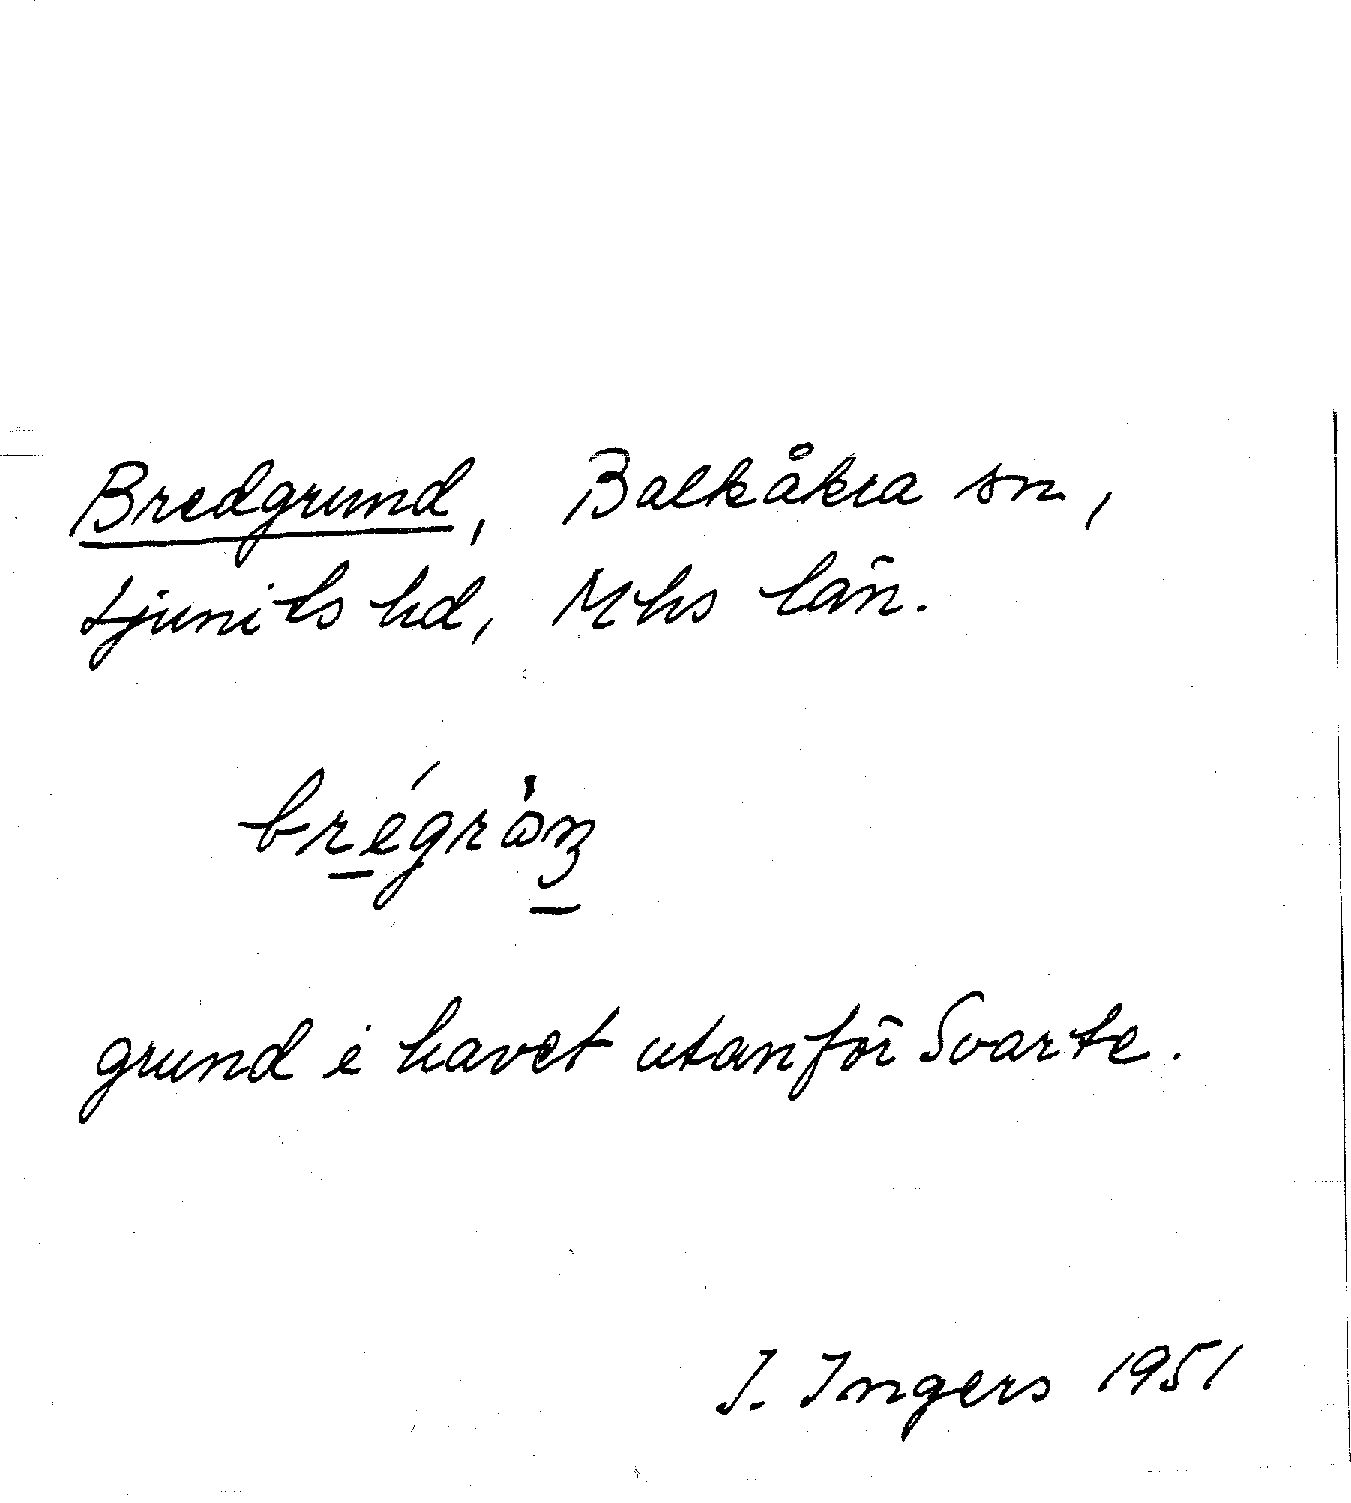 Bredgrund, Balkåkra sn,
Ljunits hd, Mhs län.
brégrȧnz
grund i havet utanför Svarte.
I. Ingers 1951